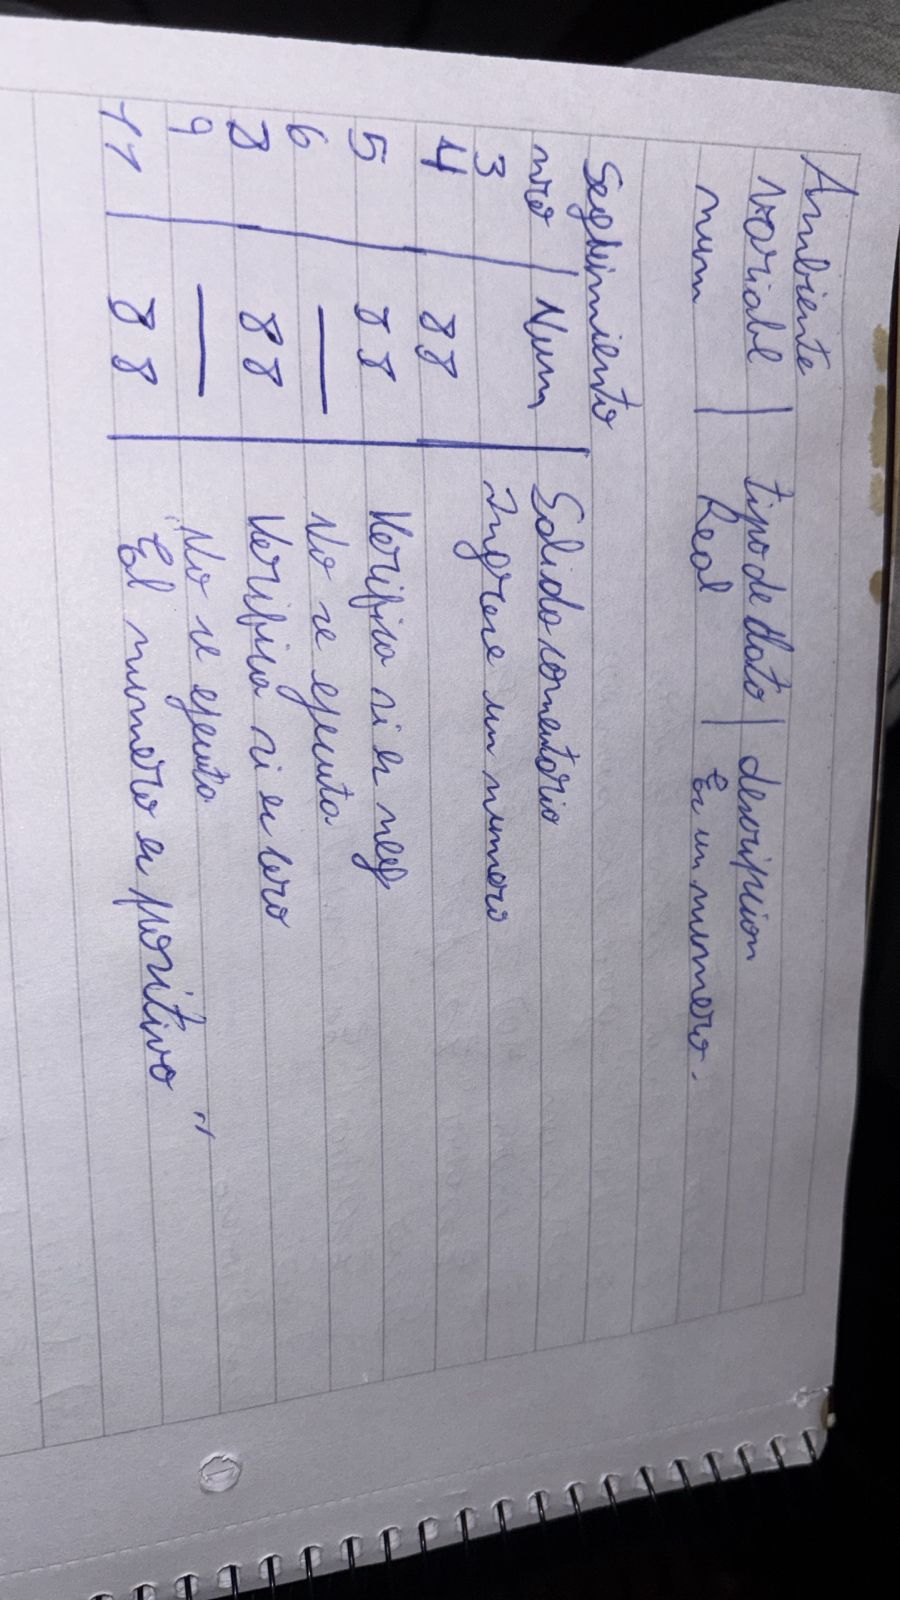 Ambiente
variabl | tipo de dato | descripcion
num | Real | Es un numero.
Seguimiento
nro | Num | Salida comentario
3 Ingrese un numero
4 | 88 |
5 | 88 | Verifica si es neg
6 | — | No se ejecuta
8 | 88 | Verifica si es cero
9 | — | No se ejecuta
11 | 88 | "El numero es positivo"